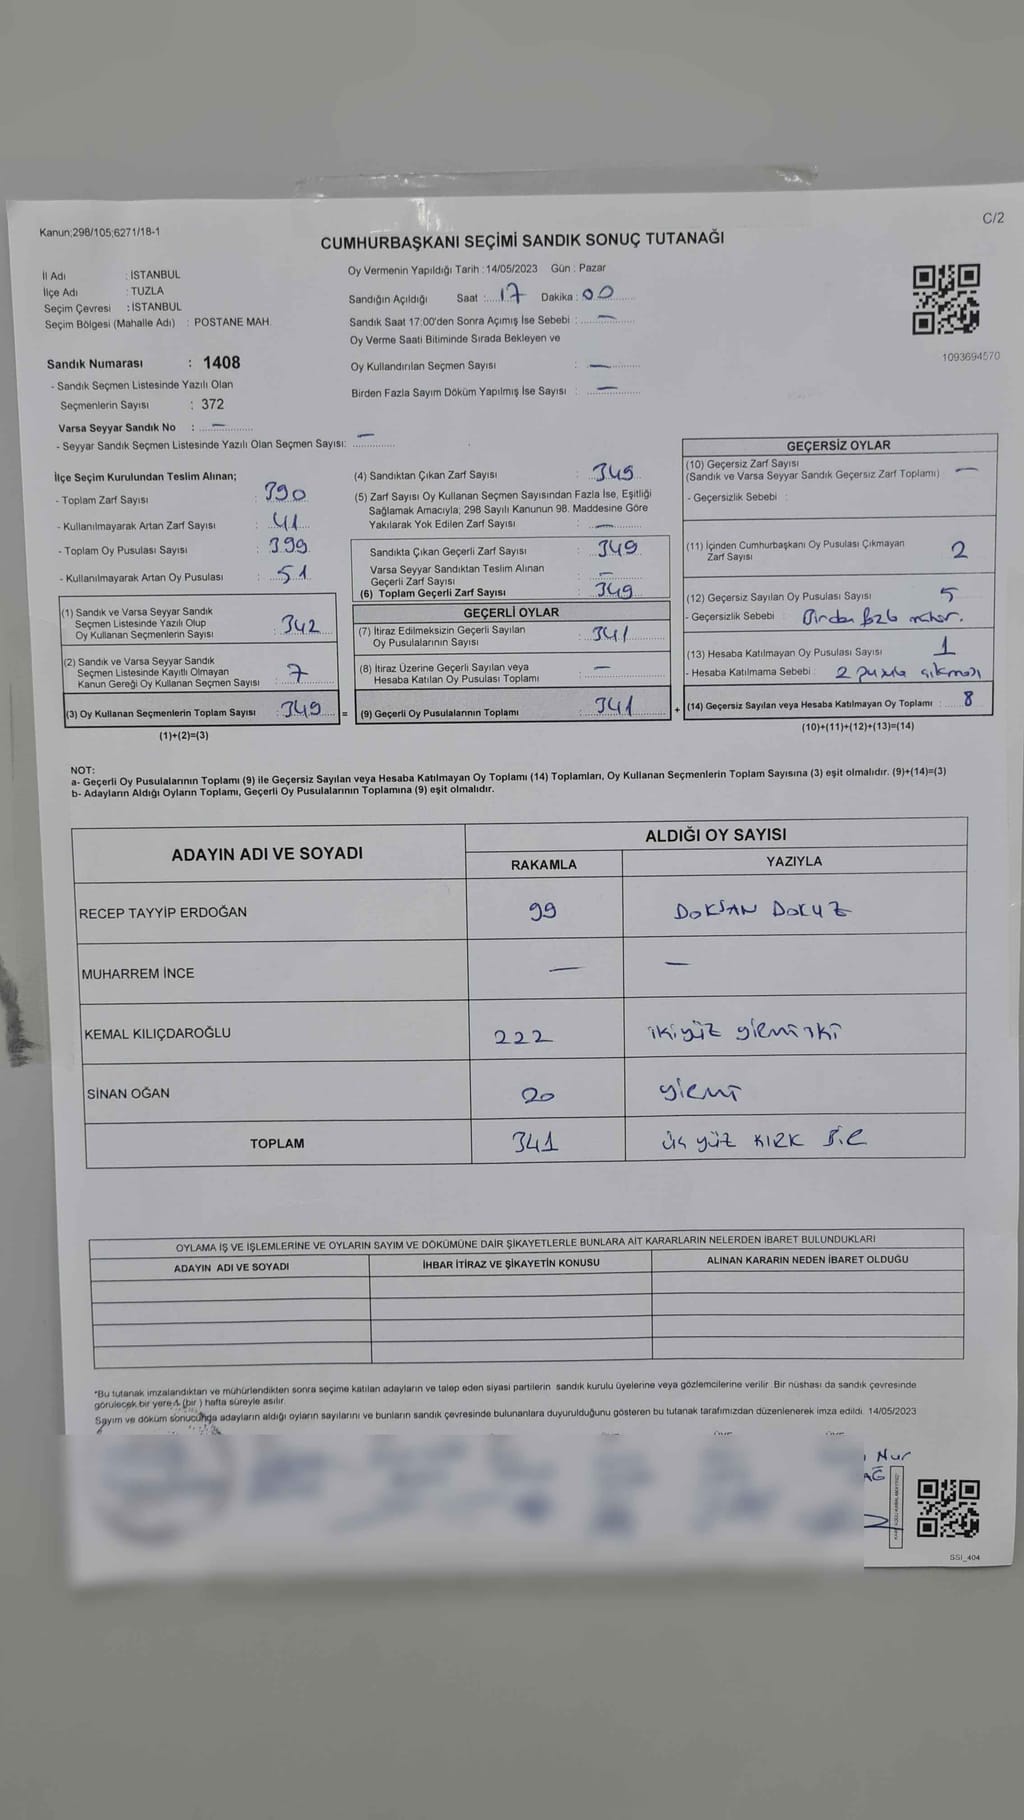 C/2
Kanun;298/105;6271/18-1
CUMHURBAŞKANI SEÇİMİ SANDIK SONUÇ TUTANAĞI
İl Adı : İSTANBUL
İlçe Adı : TUZLA
Seçim Çevresi : İSTANBUL
Seçim Bölgesi (Mahalle Adı) : POSTANE MAH.
Oy Vermenin Yapıldığı Tarih : 14/05/2023 Gün : Pazar
Sandığın Açıldığı Saat : 17 Dakika : 00
Sandık Saat 17:00'den Sonra Açımış İse Sebebi : —
Oy Verme Saati Bitiminde Sırada Bekleyen ve
Oy Kullandırılan Seçmen Sayısı : —
Birden Fazla Sayım Döküm Yapılmış İse Sayısı : —
1093694570
Sandık Numarası : 1408
- Sandık Seçmen Listesinde Yazılı Olan
Seçmenlerin Sayısı : 372
Varsa Seyyar Sandık No : —
- Seyyar Sandık Seçmen Listesinde Yazılı Olan Seçmen Sayısı: —
İlçe Seçim Kurulundan Teslim Alınan;
- Toplam Zarf Sayısı : 390
- Kullanılmayarak Artan Zarf Sayısı : 41
- Toplam Oy Pusulası Sayısı : 399
- Kullanılmayarak Artan Oy Pusulası : 51
(1) Sandık ve Varsa Seyyar Sandık
Seçmen Listesinde Yazılı Olup
Oy Kullanan Seçmenlerin Sayısı : 342
(2) Sandık ve Varsa Seyyar Sandık
Seçmen Listesinde Kayıtlı Olmayan
Kanun Gereği Oy Kullanan Seçmen Sayısı : 7
(3) Oy Kullanan Seçmenlerin Toplam Sayısı : 349 =
(1)+(2)=(3)
(4) Sandıktan Çıkan Zarf Sayısı : 349
(5) Zarf Sayısı Oy Kullanan Seçmen Sayısından Fazla İse, Eşitliği
Sağlamak Amacıyla; 298 Sayılı Kanunun 98. Maddesine Göre
Yakılarak Yok Edilen Zarf Sayısı : —
Sandıkta Çıkan Geçerli Zarf Sayısı : 349
Varsa Seyyar Sandıktan Teslim Alınan
Geçerli Zarf Sayısı : —
(6) Toplam Geçerli Zarf Sayısı : 349
GEÇERLİ OYLAR
(7) İtiraz Edilmeksizin Geçerli Sayılan
Oy Pusulalarının Sayısı : 341
(8) İtiraz Üzerine Geçerli Sayılan veya
Hesaba Katılan Oy Pusulası Toplamı : —
(9) Geçerli Oy Pusulalarının Toplamı : 341 +
GEÇERSİZ OYLAR
(10) Geçersiz Zarf Sayısı
(Sandık ve Varsa Seyyar Sandık Geçersiz Zarf Toplamı) —
- Geçersizlik Sebebi :
(11) İçinden Cumhurbaşkanı Oy Pusulası Çıkmayan
Zarf Sayısı 2
(12) Geçersiz Sayılan Oy Pusulası Sayısı 5
- Geçersizlik Sebebi : Birden fazla mühür.
(13) Hesaba Katılmayan Oy Pusulası Sayısı 1
- Hesaba Katılmama Sebebi : 2 pusula çıkması
(14) Geçersiz Sayılan veya Hesaba Katılmayan Oy Toplamı : 8
(10)+(11)+(12)+(13)=(14)
NOT:
a- Geçerli Oy Pusulalarının Toplamı (9) ile Geçersiz Sayılan veya Hesaba Katılmayan Oy Toplamı (14) Toplamları, Oy Kullanan Seçmenlerin Toplam Sayısına (3) eşit olmalıdır. (9)+(14)=(3)
b- Adayların Aldığı Oyların Toplamı, Geçerli Oy Pusulalarının Toplamına (9) eşit olmalıdır.
ADAYIN ADI VE SOYADI ALDIĞI OY SAYISI
RAKAMLA YAZIYLA
RECEP TAYYİP ERDOĞAN 99 DOKSAN DOKUZ
MUHARREM İNCE — —
KEMAL KILIÇDAROĞLU 222 ikiyüz yirmi iki
SİNAN OĞAN 20 yirmi
TOPLAM 341 üç yüz KIRK BiR
OYLAMA İŞ VE İŞLEMLERİNE VE OYLARIN SAYIM VE DÖKÜMÜNE DAİR ŞİKAYETLERLE BUNLARA AİT KARARLARIN NELERDEN İBARET BULUNDUKLARI
ADAYIN ADI VE SOYADI İHBAR İTİRAZ VE ŞİKAYETİN KONUSU ALINAN KARARIN NEDEN İBARET OLDUĞU
*Bu tutanak imzalandıktan ve mühürlendikten sonra seçime katılan adayların ve talep eden siyasi partilerin sandık kurulu üyelerine veya gözlemcilerine verilir. Bir nüshası da sandık çevresinde
görülecek bir yere 1 (bir ) hafta süreyle asılır.
Sayım ve döküm sonucunda adayların aldığı oyların sayılarını ve bunların sandık çevresinde bulunanlara duyurulduğunu gösteren bu tutanak tarafımızdan düzenlenerek imza edildi. 14/05/2023
Nur
SSI_404